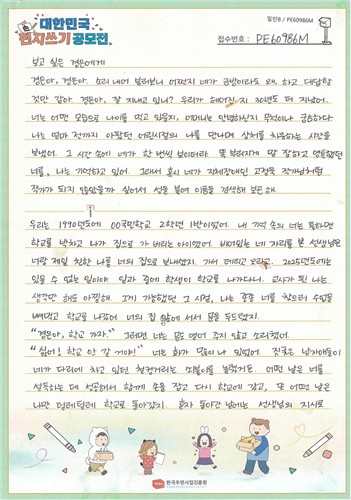 대한민국
편지쓰기 공모전
일반B / PE60986M
접수번호 : PE60986M
보고 싶은 경은에게
경은아, 경은아. 소리 내어 불러보니 어쩐지 네가 금방이라도 왜, 하고 대답할
것만 같아. 경은아, 잘 지내고 있니? 우리가 헤어진 지 30년도 더 지났어.
너는 어떤 모습으로 나이를 먹고 있을지, 어머니는 안녕하신지 무척이나 궁금하다.
나는 얼마 전까지 아팠던 어린시절의 나를 만나며 상처를 치유하는 시간을
보냈어. 그 시간 속에 네가 한 번씩 보이더라. 똑 부러지게 말 잘하고 영특했던
너를, 나는 기억하고 있어. 그래서 혹시 네가 지체장애인 고정욱 작가님처럼
작가가 되지 않았을까 싶어서 성을 붙여 이름을 검색해 보곤 해.
우리는 1990년도에 00국민학교 2학년 1반이었어. 내 기억 속의 너는 툭하면
학교를 박차고 나가 집으로 가 버리는 아이였어. 비어있는 네 자리를 본 선생님은
너랑 제일 친한 나를 너의 집으로 보내셨지. 가서 데리고 오라고. 2025년도에는
있을 수 없는 일이야. 일과 중에 학생이 학교를 나가다니. 교사가 된 나는
생각만 해도 아찔해. 그게 가능했던 그 시절, 나는 종종 너를 찾으러 수업을
빼먹고 학교를 나섰어. 너의 집 앞에 서서 문을 두드렸지.
“경은아, 학교 가자.” 그러면 너는 문도 열어 주지 않고 소리쳤어.
“싫어! 학교 안 갈 거야!” 너는 화가 많이 나 있었어. 짓궂은 남자애들이
네가 다리에 차고 있던 철컹거리는 쇠붙이를 놀렸거든. 어떤 날은 너를
설득하는 데 성공해서 함께 손을 잡고 다시 학교에 갔고, 또 어떤 날은
나만 터덜터덜 학교로 돌아갔지. 혼자 돌아간 날에는 선생님의 지시로
한국우편사업진흥원